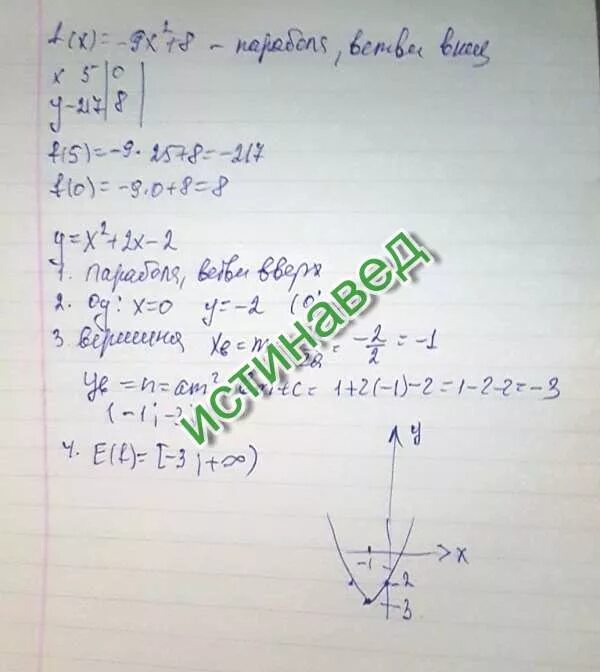 f(x)=-9x²+8 - парабола, ветви вниз
x 5 | 0 |
y -217 | 8 |
f(5)=-9·25+8=-217
f(0)=-9·0+8=8
y=x²+2x-2
1. парабола, ветви вверх
2. Oy: x=0 y=-2 (0;
3. вершина xв=m = -2/2 = -1
yв=n=am² +c= 1+2(-1)-2=1-2-2=-3
(-1; -3
4. E(f)=[-3;+∞)
истинавед
y
-1
x
-2
-3